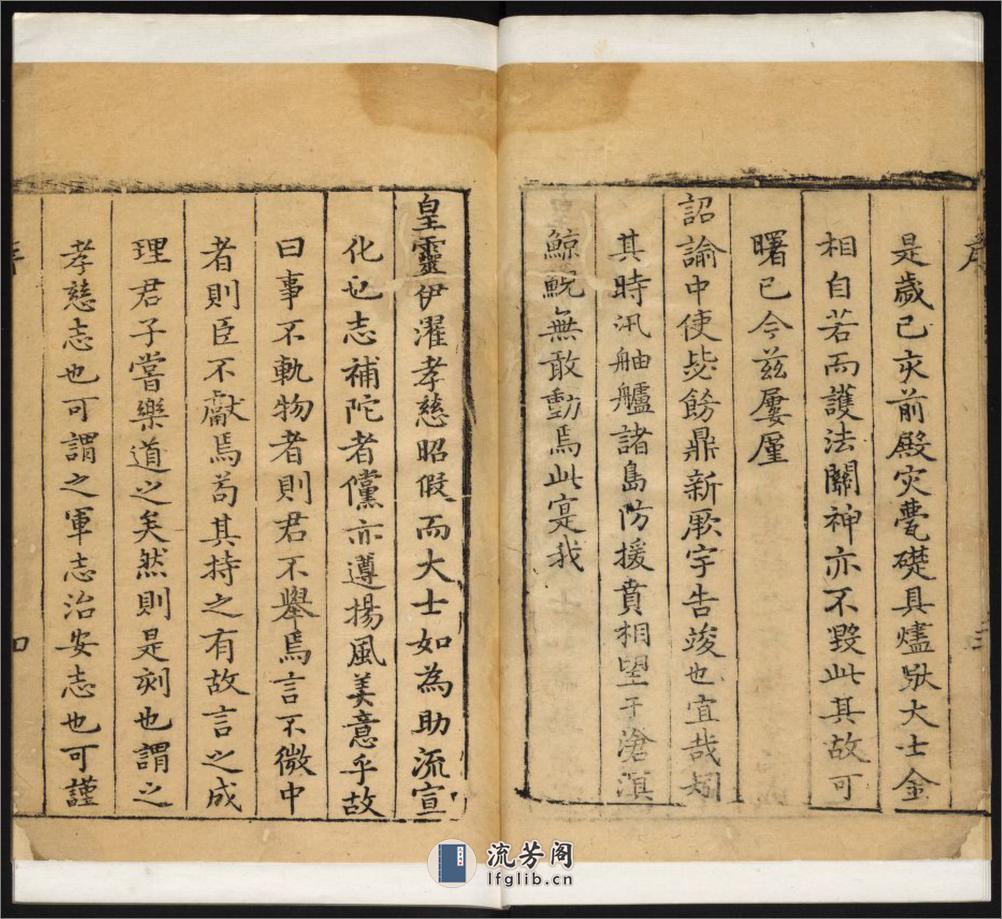 是歲己亥前殿灾甍礎具燼歸大士金
相自若而護法關神亦不毀此其故可
曙已今茲屢廑
詔諭中使毖飭鼎新厥宇告竣也宜哉矧
其時汛舳艫諸島防援賁相望于滄溟
鯨鯢無敢動焉此寔我
皇靈伊濯孝慈昭假而大士如為助流宣
化也志補陀者儻亦遵揚風美意乎故
曰事不軌物者則君不舉焉言不微中
者則臣不獻焉苟其持之有故言之成
理君子嘗樂道之矣然則是刻也謂之
孝慈志也可謂之軍志治安志也可謹
流芳阁
lfglib.cn